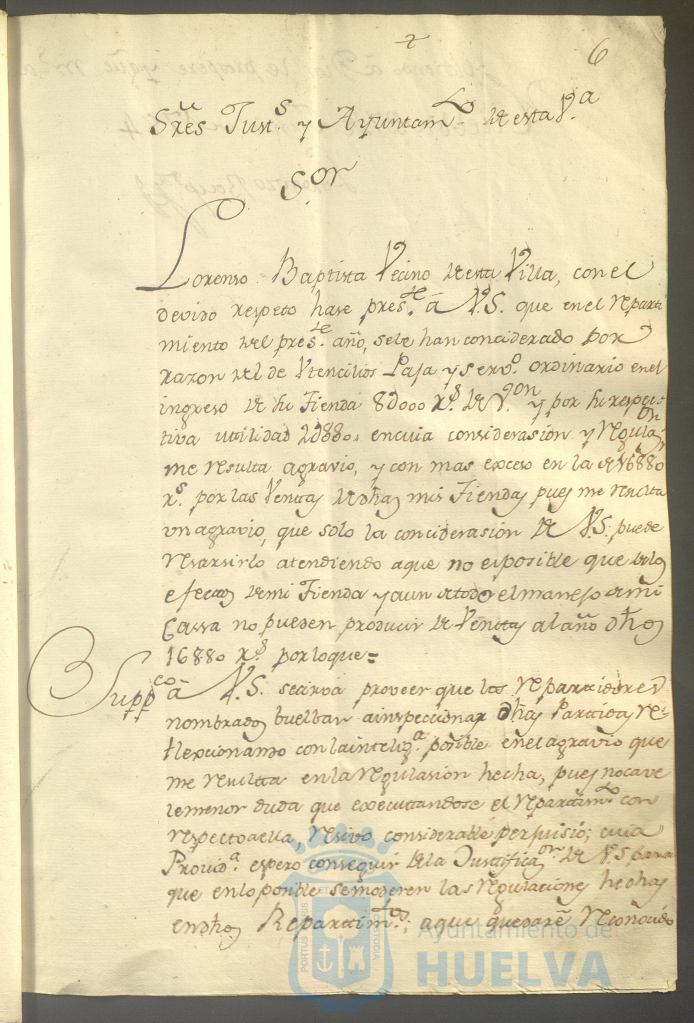 6
Sres Just.s y Ayuntam.to de esta V.a
S.or
Lorenso Baptista Vecino de esta Villa, con el
devido respeto hase pres.te â V.S. que en el reparti
miento del pres.te año, se le han conciderado por
razon del de Vtencilios Paja y serv.o ordinario en el
ingreso de su Tienda 8U000 r.s de V.on y por su respec
tiva utilidad 2U880, en cuia considerasión y regula.on
me resulta agravio, y con mas exceso en la de 16880
r.s por las Ventas de dhas mis Tiendas pues me resulta
un agravio, que solo la conciderasión de V.S. puede
resarsirlo atendiendo a que no es posible que de los
efectos de mi Tienda y aun de todo el manejo de mi
Cassa no pueden producir de Ventas al año dhos
16880 r.s por lo que=
Supp.co â V.S. se sirva proveer que los repartidores
nombrados buelban a inspeccionar dhas Partidas re-
flexcionando con la intelig.a posible en el agravio que
me resultta en la regulasión hecha, pues no cave
le menor duda que executandose el repartim.to con
respecto a ella, resivo considerable perjuisio; cuia
Provid.a espero conseguir de la Justifica.on de V.S. para
que en lo posible se moderen las regulaciones hechas
en dhos Repartim.tos; a que quedarê reconosido
PORTUS MARIS ET TERRAE CUSTODIA
Ayuntamiento de
HUELVA